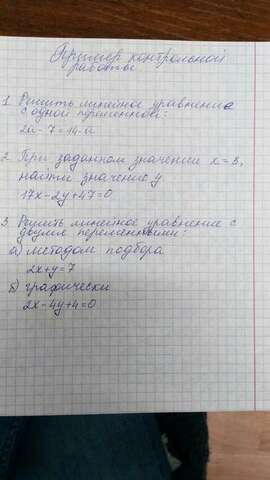 Пример контрольной
работы
1. Решить линейное уравнение
с одной переменной:
2a-7=14-a
2. При заданном значении x=3,
найти значение y.
17x-2y+47=0
3. Решить линейное уравнение с
двумя переменными:
а) методом подбора
2x+y=7
б) графически
2x-4y+4=0